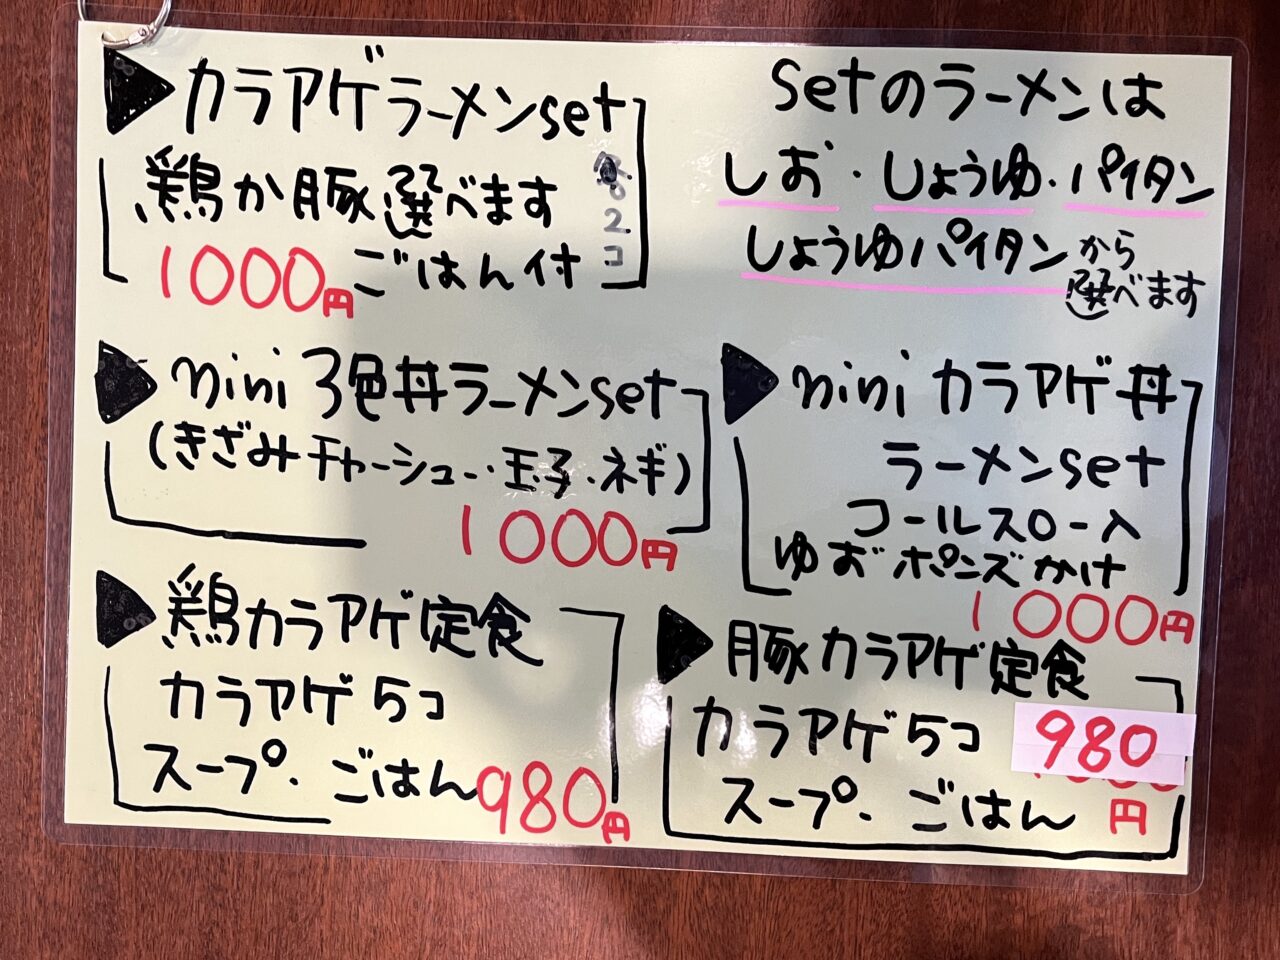 カラアゲラーメンset
鶏か豚選べます
2コ
1000円 ごはん付
setのラーメンは
しお・しょうゆ・パイタン
しょうゆパイタンから
選べます
mini 3色丼ラーメンset
(きざみチャーシュー・玉子・ネギ)
1000円
mini カラアゲ丼
ラーメンset
コールスロー入
ゆずポンズかけ
1000円
鶏カラアゲ定食
カラアゲ5コ
スープ・ごはん 980円
豚カラアゲ定食
カラアゲ5コ 980
スープ・ごはん 円